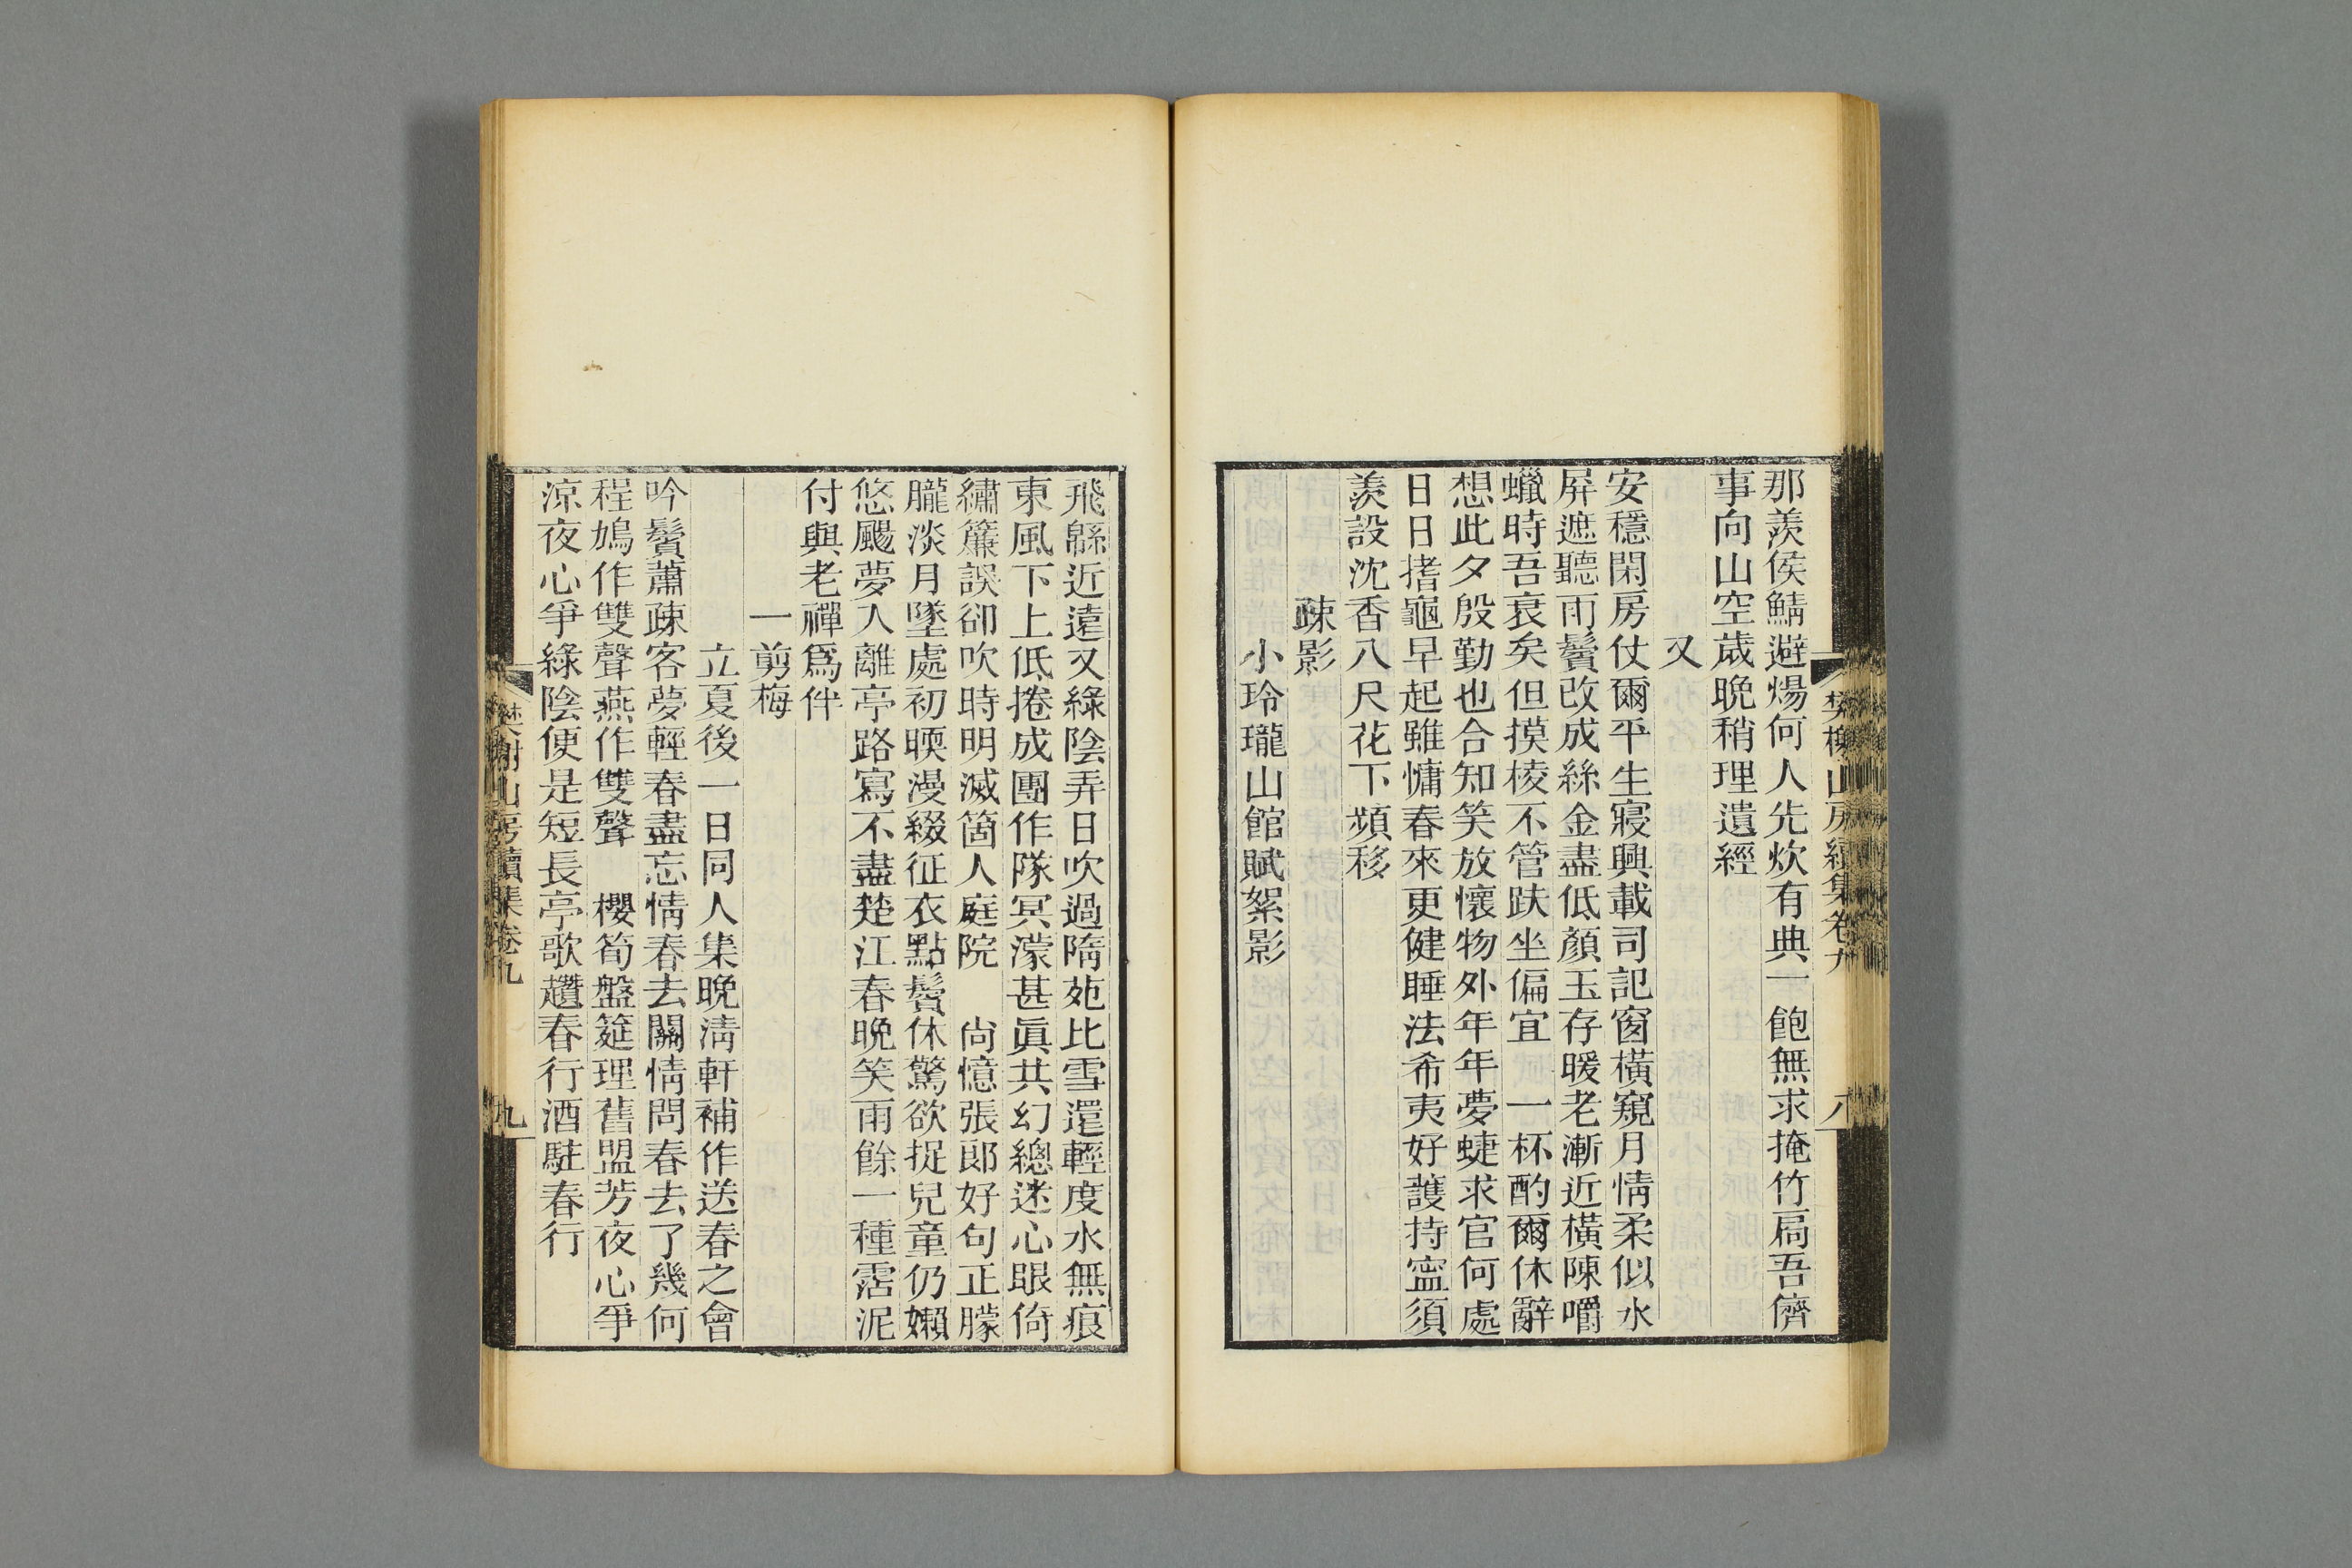 樊榭山房續集卷九
八
那羨侯鯖避煬何人先炊有典一飽無求掩竹扃吾儕
事向山空歲晚稍理遺經
又
安穩閑房仗爾平生寢興載司記窗橫窺月情柔似水
屏遮聽雨鬢改成絲金盡低顏玉存暖老漸近橫陳嚼
蠟時吾衰矣但摸棱不管趺坐偏宜 一杯酌爾休辭
想此夕殷勤也合知笑放懷物外年年夢蜨求官何處
日日搘龜早起雖慵春來更健睡法希夷好護持寍須
羨設沈香八尺花下頻移
疎影
小玲瓏山館賦絮影
飛緜近遠又綠陰弄日吹過隋苑比雪還輕度水無痕
東風下上低捲成團作隊冥濛甚眞共幻總迷心眼倚
繡簾誤卻吹時明滅箇人庭院 尙憶張郞好句正朦
朧淡月墜處初䎡漫綴征衣點鬢休驚欲捉兒童仍嬾
悠颺夢入離亭路寫不盡楚江春晚笑雨餘一種霑泥
付與老禪爲伴
一剪梅
立夏後一日同人集晚淸軒補作送春之會
吟鬢蕭疎客夢輕春盡忘情春去關情問春去了幾何
程鳩作雙聲燕作雙聲 櫻筍盤筵理舊盟芳夜心爭
涼夜心爭綠陰便是短長亭歌趲春行酒駐春行
樊榭山房續集卷九
九